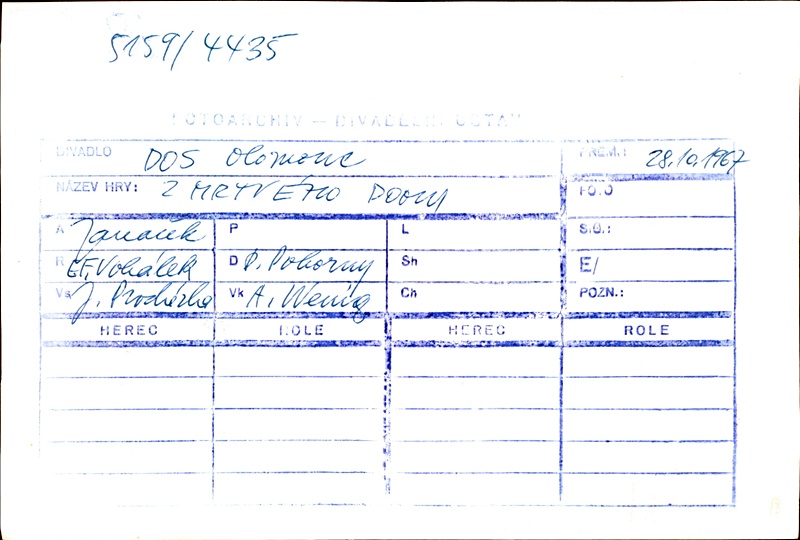 5159/4435
FOTOARCHIV — DIVADELNÍ ÚSTAV
DIVADLO DOS Olomouc PREM.: 28.10.1967
NÁZEV HRY: Z MRTVÉHO DOMU FOTO
A Janáček P L SIG.:
R E.F.Vokálek D P. Pokorný Sh E/
Vs J. Procházka Vk A. Wenig Ch POZN.:
HEREC ROLE HEREC ROLE